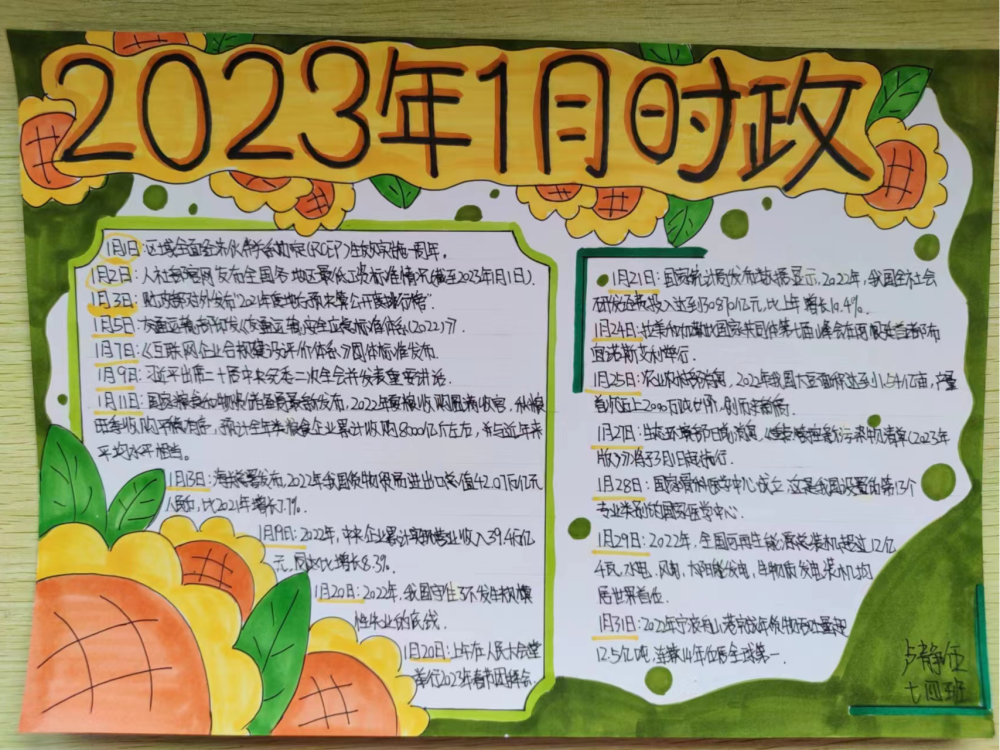 2023年1月时政
1月1日:区域全面经济伙伴关系协定(RCEP)生效实施一周年.
1月2日:人社部官网发布全国各地区最低工资标准情况(截至2023年1月1日).
1月3日:财政部对外发布"2021年度地方预决算公开度排行榜".
1月5日:交通运输部印发《交通运输安全应急标准体系(2022)》.
1月7日:《互联网企业合规建设评价体系》团体标准发布.
1月9日:习近平出席二十届中央纪委二次全会并发表重要讲话.
1月11日:国家粮食和物资储备局最新发布,2022年夏粮收购圆满收官,秋粮
旺季收购平稳有序,预计全年各类粮食企业累计收购8000亿斤左右,与近年来
平均水平相当。
1月13日:海关总署发布,2022年我国货物贸易进出口总值42.07万亿元
人民币,比2021年增长7.7%.
1月19日:2022年,中央企业累计实现营业收入39.4万亿
元,同比增长8.3%.
1月20日:2022年,我国守住了不发生规模
性失业的底线.
1月20日:上午在人民大会堂
举行2023年春节团拜会.
1月21日:国家统计局发布数据显示,2022年,我国全社会
研发经费投入达到30870亿元,比上年增长10.4%.
1月24日:拉美和加勒比国家共同体第七届峰会在阿根廷首都布
宜诺斯艾利斯举行.
1月25日:农业农村部消息,2022年我国大豆面积达到1.54亿亩,产量
首次迈上2000万吨台阶,创历史新高.
1月27日:生态环境部日前消息,《重点管控新污染物清单(2023年
版)》将于3月1日起施行.
1月28日:国家骨科医学中心成立,这是我国设置的第13个
专业类别的国家医学中心.
1月29日:2022年,全国可再生能源总装机超过12亿
千瓦,水电、风电、太阳能发电、生物质发电装机均
居世界首位.
1月31日:2022年宁波舟山港完成年货物吞吐量超
12.5亿吨,连续14年位居全球第一.
卢静
七四班